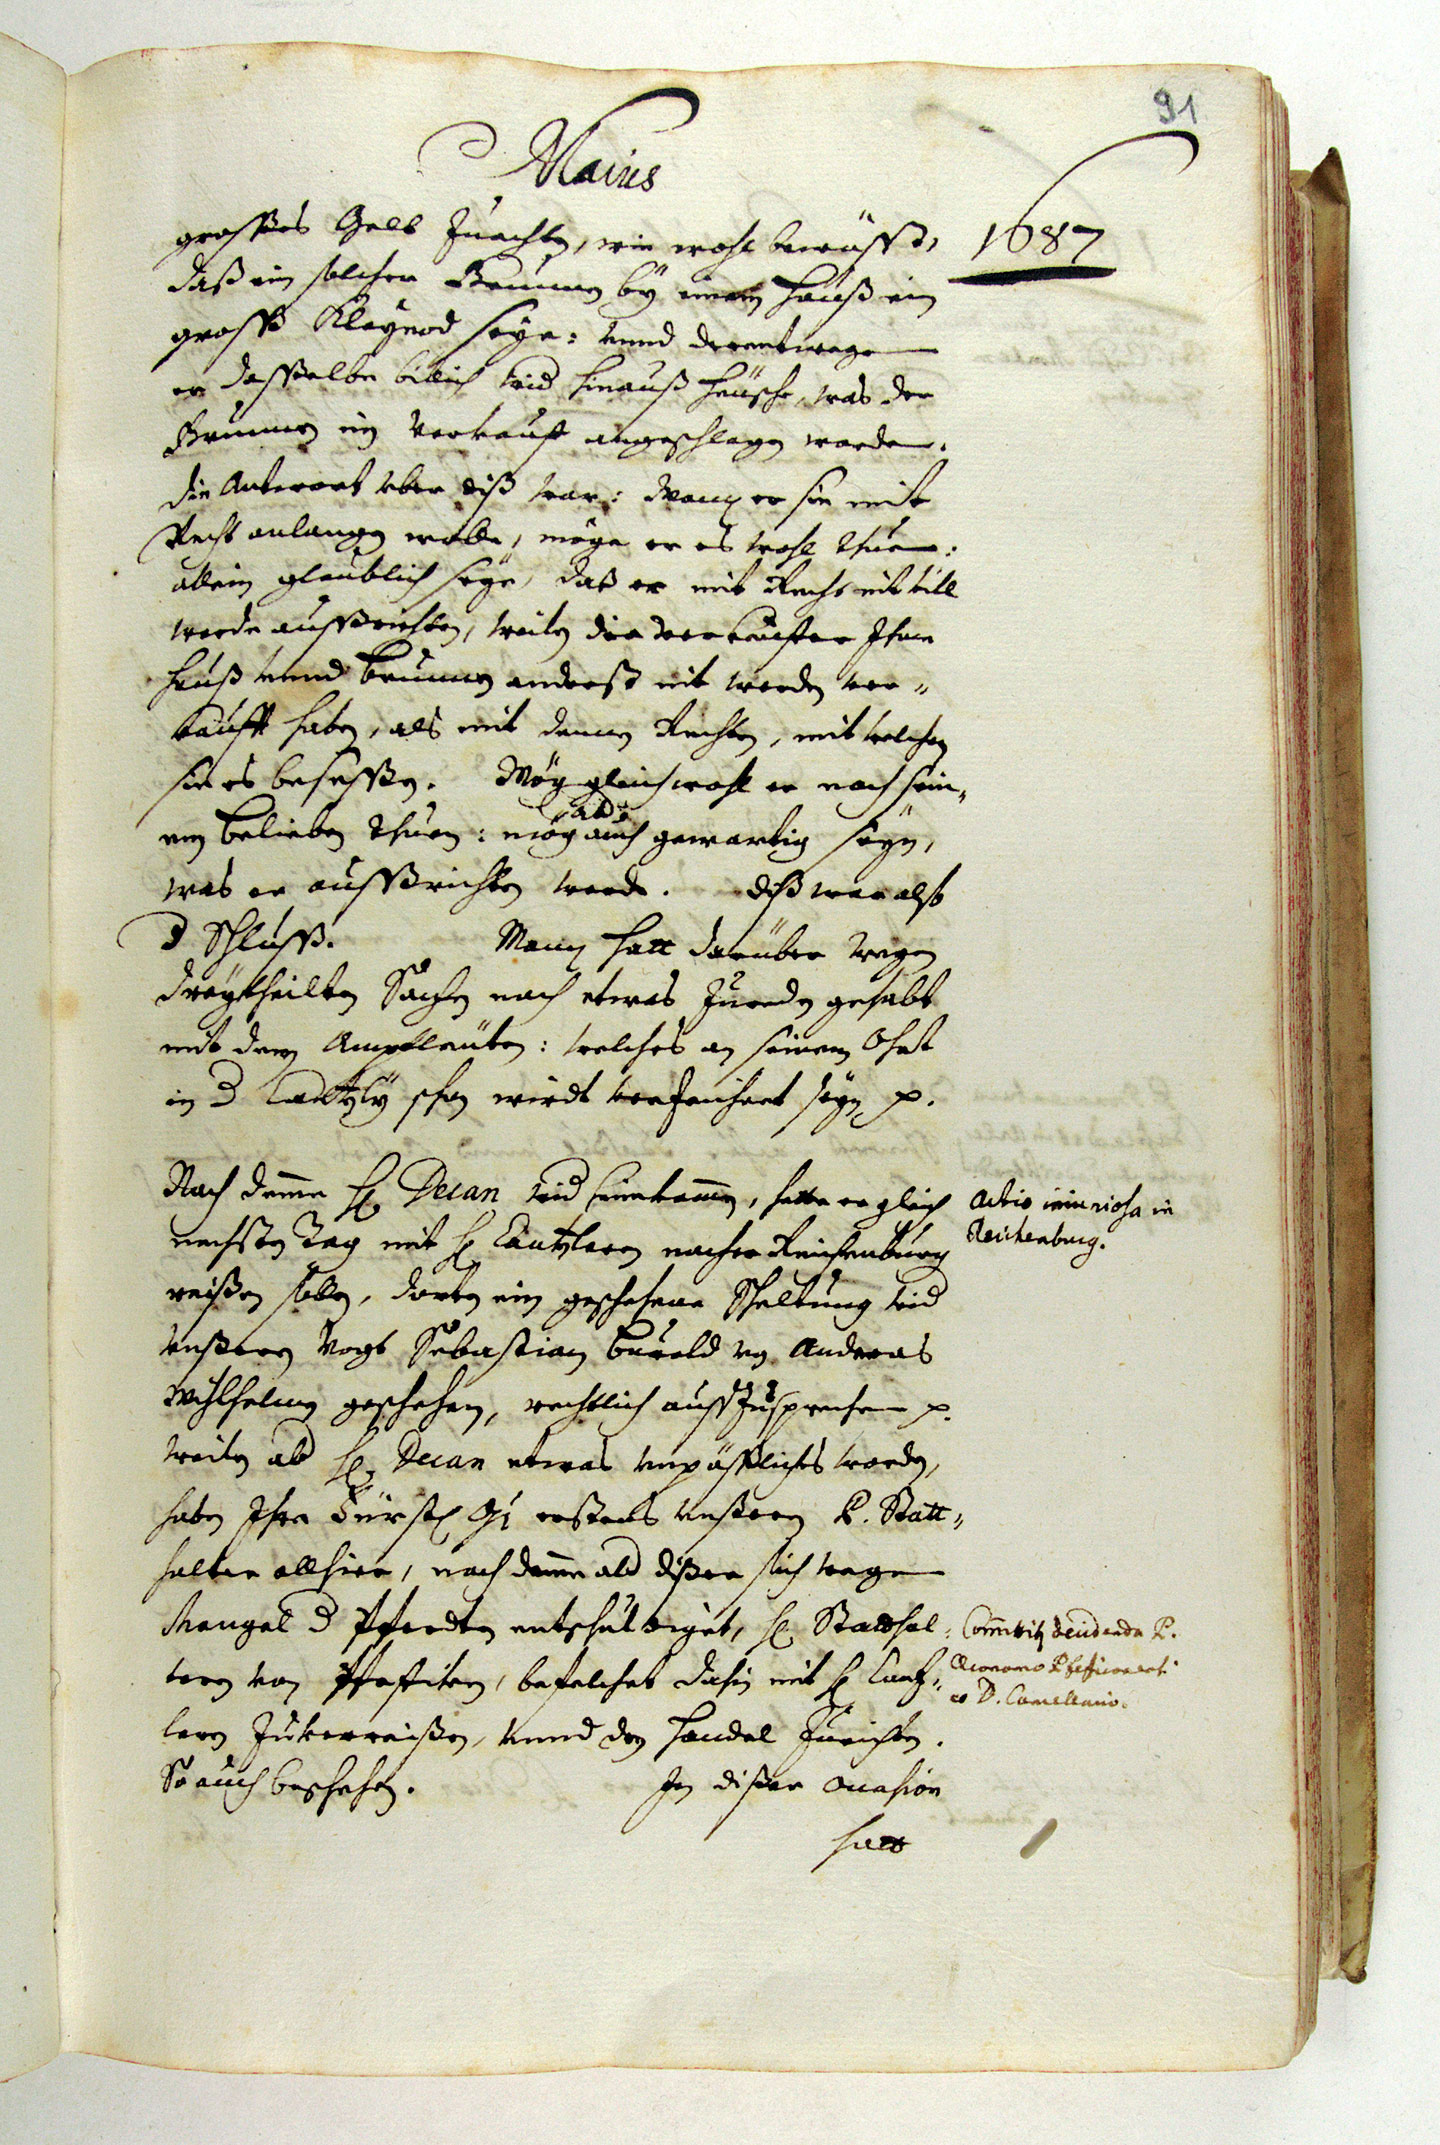 91
Maius
1687
grosses Gelt Zuachten, wie wohl bewüsst,
daß ein solcher Brunnen bÿ einem hauß ein
gross Kleÿnod seÿe: vnnd derentwegen
er dasselbe billich wid hinauß heüsche, was der
Brunnen im Verkauff angeschlagen worden.
die Antwort vber diß war: Wann er sie mit
Recht anlangen wolle, möge er es wohl thuen:
allein glaublich seÿe, daß er mit Recht nit vill
werde außrichten, weilen die verkäuffer Ihme
hauß vnnd brunnen anderst nit werden ver-
kaufft haben, als mit denen Rechten, mit welchen
sie es besessen. Mög gleichwohl er nach sein-
em belieben thuen: mög abr auch gewartig seÿn,
was er außrichten werde. diß war also
d Schluss. Mann hatt darüber wegen
dreÿtheilten Sachen noch etwas Zureden gehabt
mit den Amptleüten: welches an seinem Ohrt
in d Cantzlÿ schon wirdt verzeichnet seÿn p.
Nach deme H. Decan wid heimkommen, hatte er gleich
nechsten Tag mit H. Cantzleren nacher Reichenburg
reißen sollen, dorten ein geschehene Scheltung wid
vnßeren Vogt Sebastian burold vo Andreas
Wilhelmen geschehen, rechtlich ausszusprechen p.
weilen abr H. Decan etwas vnpässliches worden,
haben Ihr Fürstl. Gn. erstens vnßeren P. Statt-
halter allhier, nach deme abr dißer sich wegen
Mangel d Pferdten entschuldiget, H. Statthal-
teren von Pfeffiken, befelchet dahin mit H. Cantz-
leren Zuverreißen, vnnd den handel Zurichten.
So auch beschehen. In dißer occasion
hatt
Actio iniuriosa in
Reichenburg.
Committitur
P.
Oeconomo
D. Cancellario.